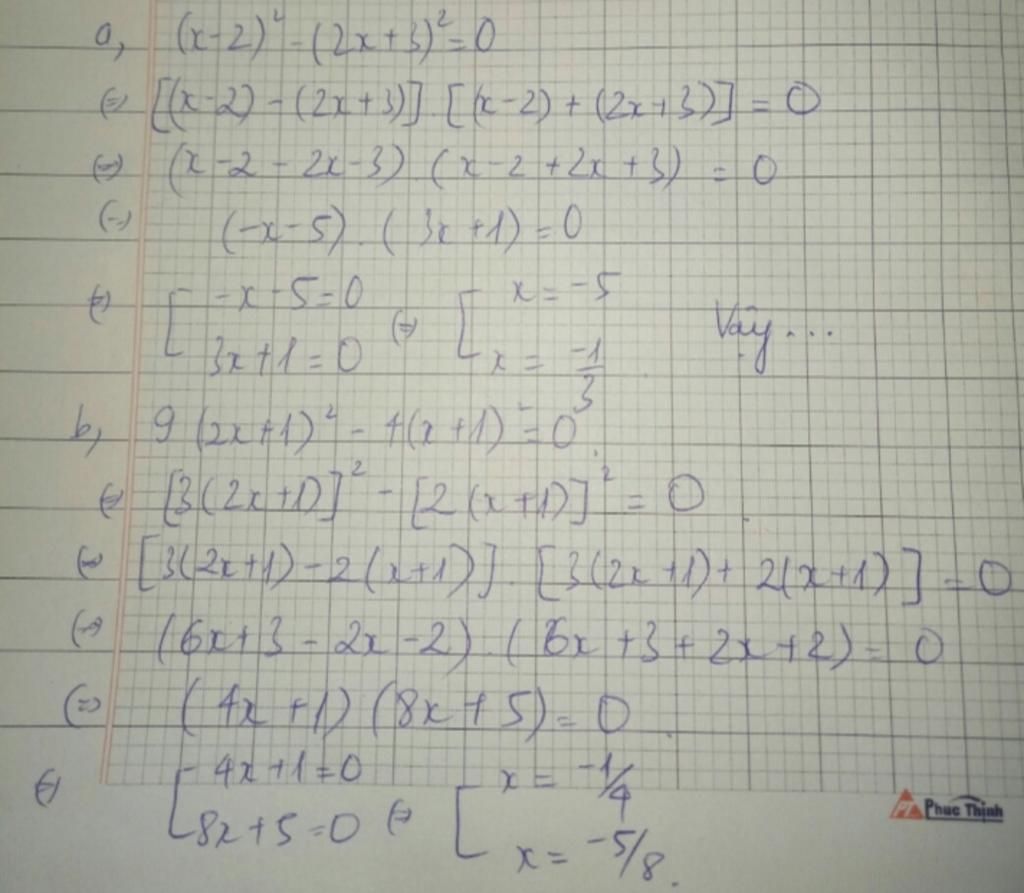 a, (x-2)² - (2x+3)² = 0
⇔ [(x-2) - (2x+3)] . [(x-2) + (2x+3)] = 0
⇔ (x-2-2x-3) . (x-2+2x+3) = 0
⇔ (-x-5) . (3x+1) = 0
⇔ [ -x-5=0 ⇔ [ x = -5
3x+1=0 x = -1/3 Vậy...
b, 9(2x+1)² - 4(x+1)² = 0
⇔ [3(2x+1)]² - [2(x+1)]² = 0
⇔ [3(2x+1) - 2(x+1)] . [3(2x+1) + 2(x+1)] = 0
⇔ (6x+3-2x-2) . (6x+3+2x+2) = 0
⇔ (4x+1) (8x+5) = 0
⇔ [ 4x+1=0 ⇔ [ x = -1/4
8x+5=0 x = -5/8.
PT Phuc Thinh